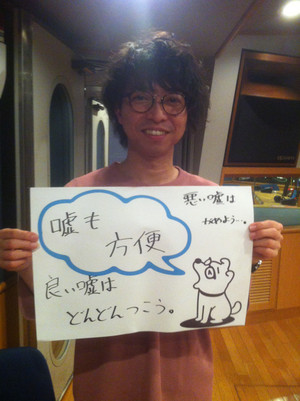 嘘も
方便
悪い嘘は
やめよう…。
良い嘘は
どんどんつこう。